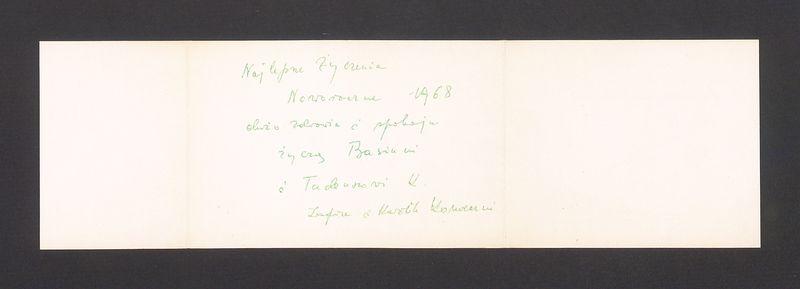 Najlepsze Życzenia
Noworoczne 1968
dużo zdrowia i spokoju
życzą Basieńki
i Tadeuszowi K.
i Karol